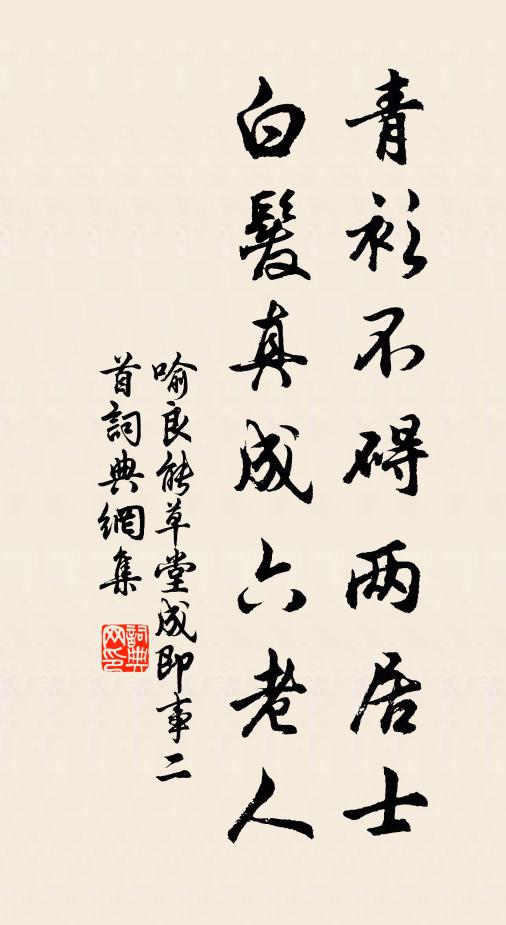 青衫不碍两居士
白髮真成六老人
喻良能草堂成即事二
首詞典網集
詞典网印